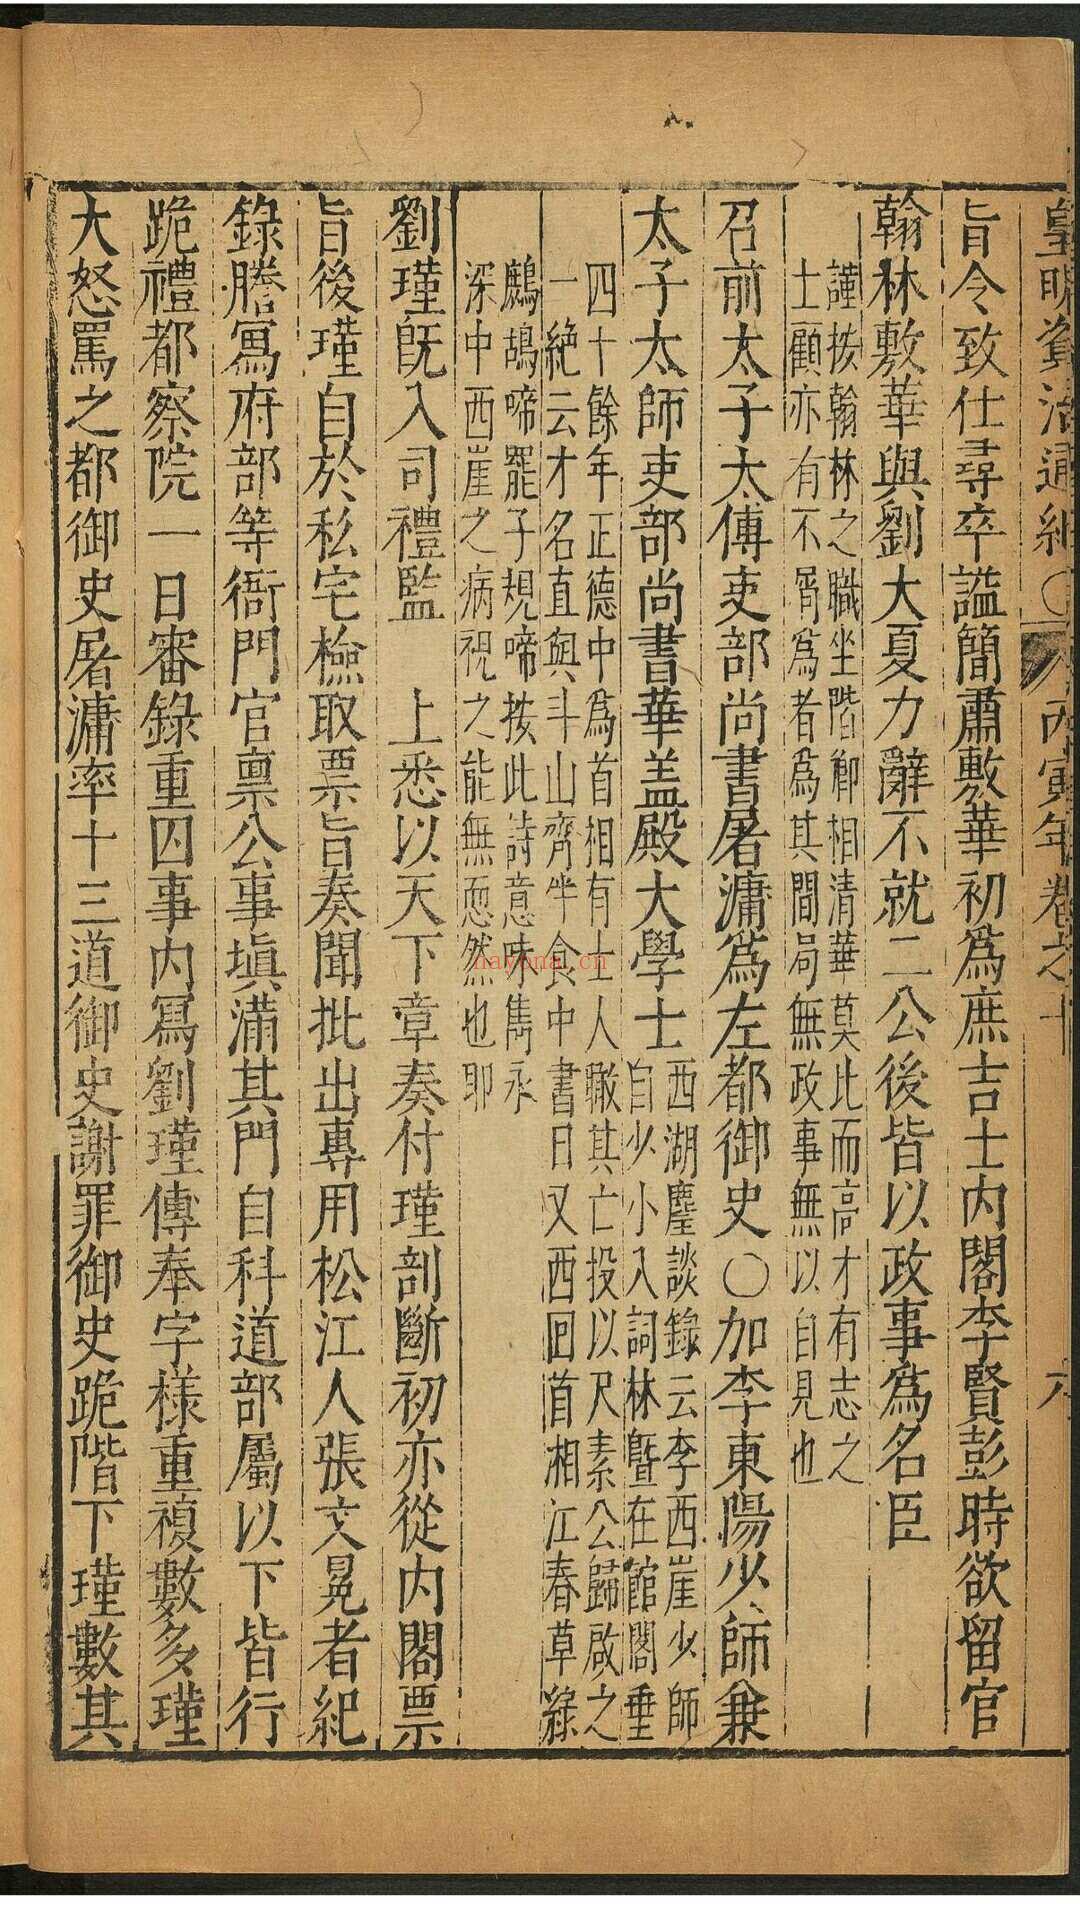 皇明資治通紀〇 丙寅年 卷之十 六
旨令致仕尋卒謚簡肅敷華初爲庶吉士内閣李賢彭時欲留官
翰林敷華與劉大夏力辭不就二公後皆以政事爲名臣
謹按翰林之職坐階卿相清華莫此而高才有志之
士顧亦有不屑爲者為其間局無政事無以自見也
召前太子太傅吏部尚書屠滽爲左都御史〇加李東陽少師兼
太子太師吏部尚書華盖殿大學士
西湖麈談錄云李西崖少師
自少小入詞林曁在館閣垂
四十餘年正德中爲首相有士人瞰其亡投以尺素公歸啟之
一絶云才名直與斗山齊半食中書日又西囬首湘江春草綠
鷓鴣啼罷子規啼按此詩意味雋永
深中西崖之病視之能無恧然也耶
劉瑾旣入司禮監 上悉以天下章奏付瑾剖斷初亦從内閣票
旨後瑾自於私宅檢取票旨奏聞批出專用松江人張文冕者紀
錄謄寫府部等衙門官禀公事塡滿其門自科道部屬以下皆行
跪禮都察院一日審錄重囚事内寫劉瑾傳奉字樣重複數多瑾
大怒罵之都御史屠滽率十三道御史謝罪御史跪階下瑾數其
nayona.cn